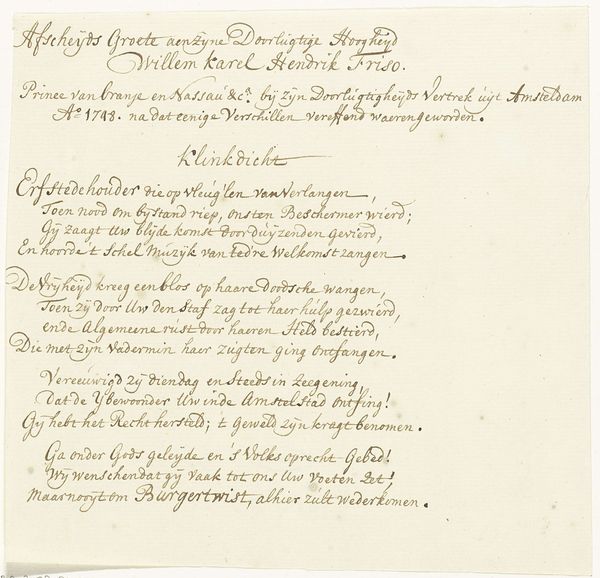 Afscheyds Groete aen zyne Doorlugtige Hoogheyd
Willem Karel Hendrik Friso.
Prince van Oranje en Nassau &c.ª bij zyn Doorlugtigheyds Vertrek uijt Amsteldam
Aº 1748. na dat eenige Verschillen vereffend waeren geworden.
Klinkdicht
Erfstedehouder die op vleug'len van Verlangen,
Toen nood om bystand riep, onsten Beschermer wierd;
Gij zaagt Uw blyde komst door duyzenden gevierd,
En hoorde 't schel Muzyk van tedre Welkomst zangen.
De Vryheyd kreeg een blos op haare doodsche wangen,
Toen zij door Uw den Staf zag tot haer hulp gezwierd,
ende Algemeene rust door haeren Held bestierd,
Die met zyn Vadermin haer zugten ging ontfangen.
Vereeuwigd zy diendag en steeds in zeegening,
Dat de Ybewoonder Uw inde Amstelstad ontfing!
Gy hebt het Recht hersteld; 't geweld zyn kragt benomen.
Ga onder Gods geleyde en 's Volks oprecht Gebed!
Wy wenschen dat gy vaak tot ons Uw voeten Zet!
Maar nooyt om Burgertwist, alhier zult wederkomen.